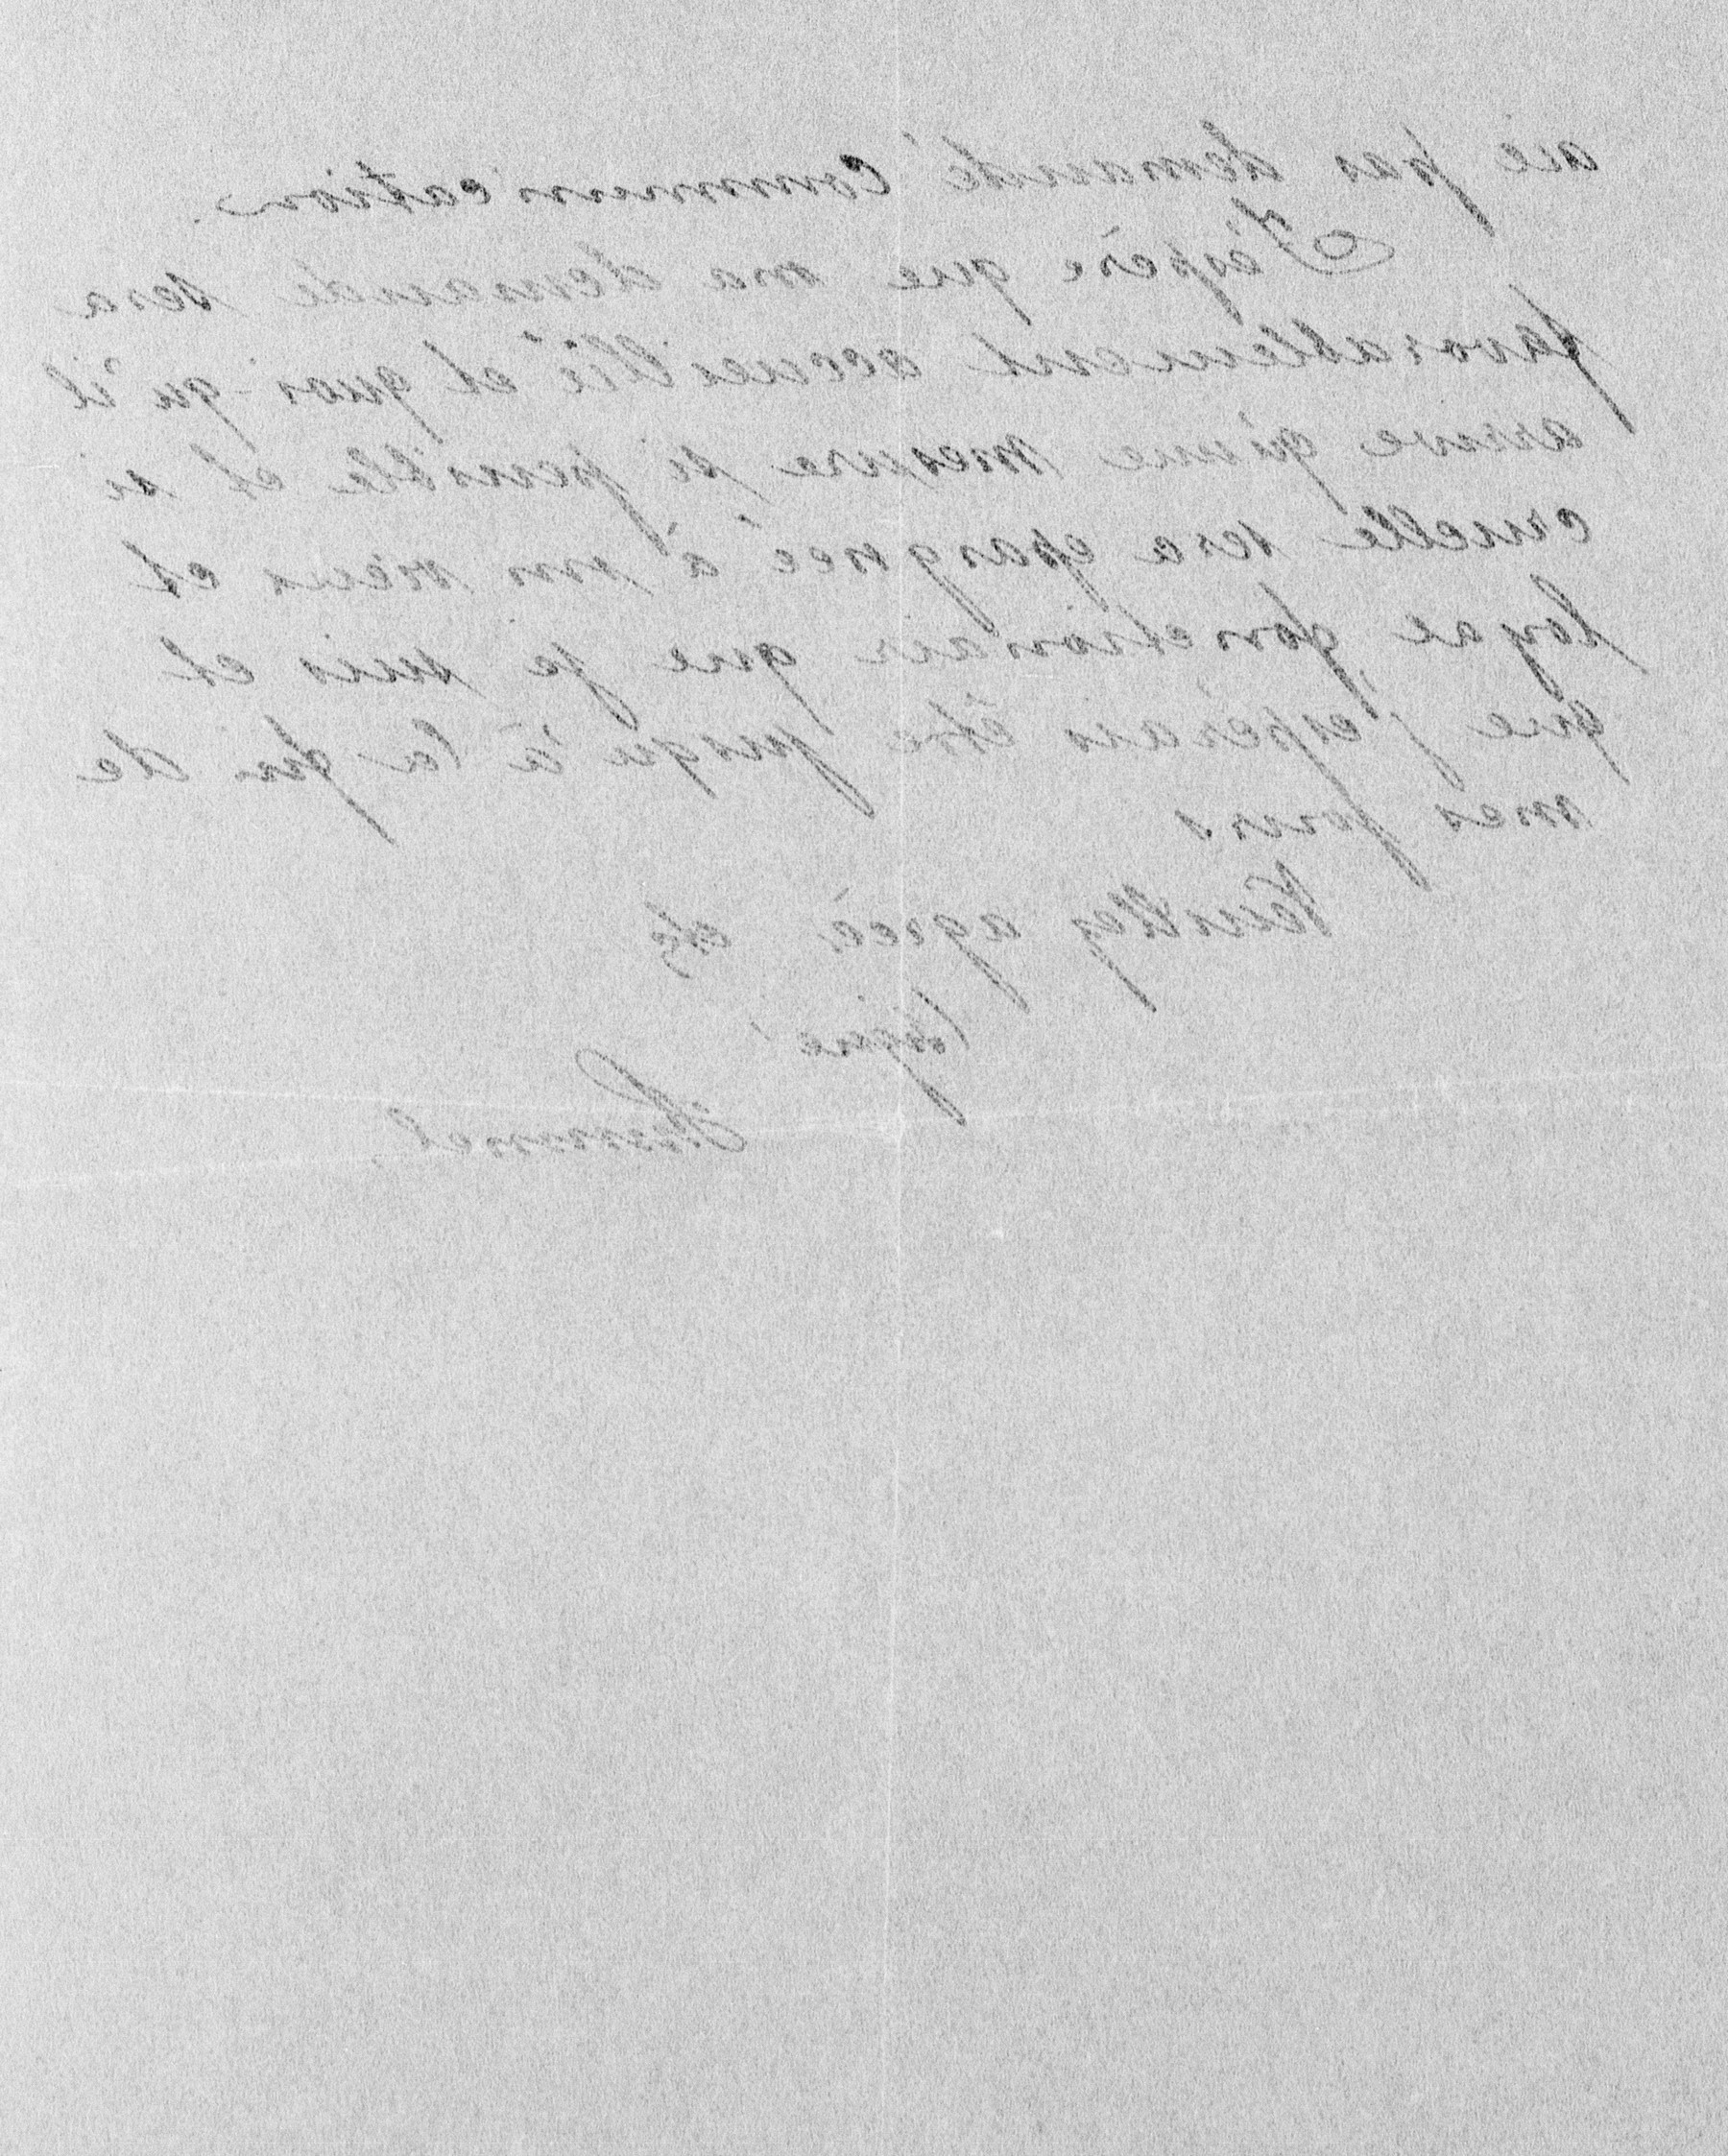 aie pas demandé communication.
J'espère que ma demande sera
favorablement accueillie et quoi-qu'il
arrive qu'une mesure si pénible et si
cruelle sera épargnée à un vieux et
loyal fonctionair que je suis et
que j'espérais être jusqu'à la fin de
mes jours
Veuillez agréer, etc
(signé